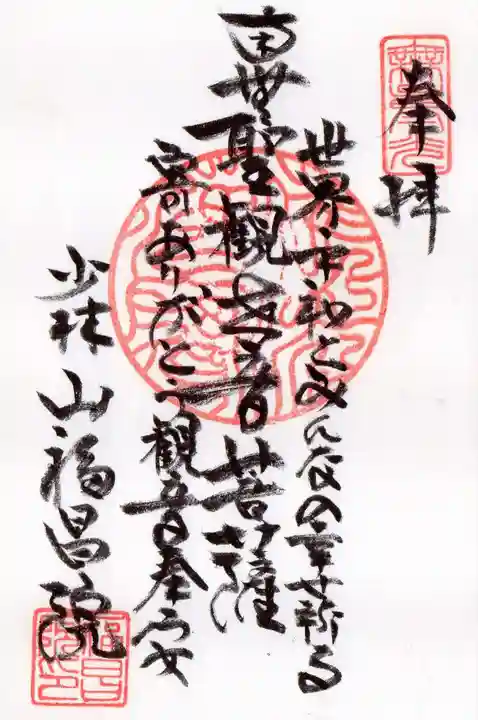 奉拝
世界平和とみんなの幸せ祈る
南無聖観世音菩薩
ありがとう観音奉安
少林山福昌院